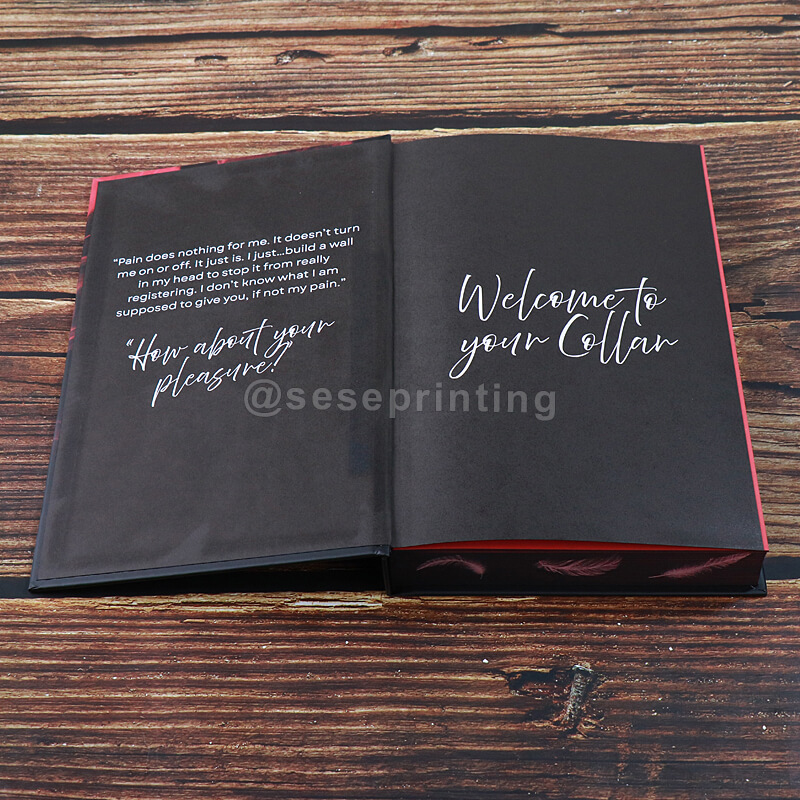 “Pain does nothing for me. It doesn’t turn
me on or off. It just is. I just...build a wall
in my head to stop it from really
registering. I don’t know what I am
supposed to give you, if not my pain.”
“How about your
pleasure?”
Welcome to
your Collar
@seseprinting